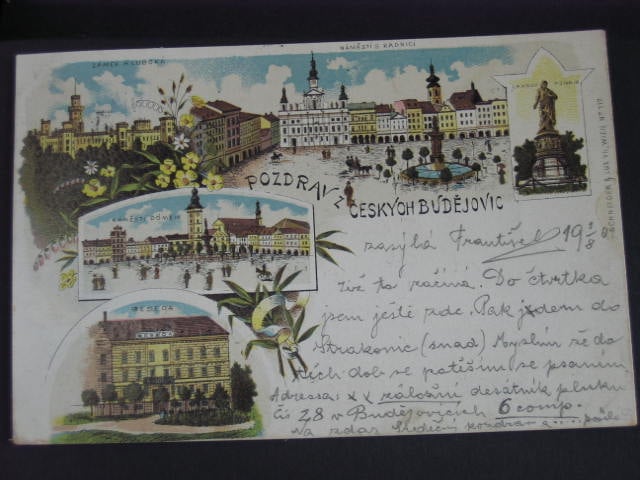 ZÁMEK HLUBOKÁ
NÁMĚSTÍ S RADNICÍ
POZDRAV Z
ČESKÝCH BUDĚJOVIC
NÁMĚSTÍ S DÓMEM
BESEDA
BESEDA
zasýlá František 19 /8
to začíná. Do čtvrtka
jsem ještě zde. Pak jedem do
Strakonic (snad) Myslím že do
těch dob se potěším se psaním
Adressa: xx záložní desátník pluku
čís 28 v Budějovicích 6 comp.
Na zdar Srdečný pozdrav